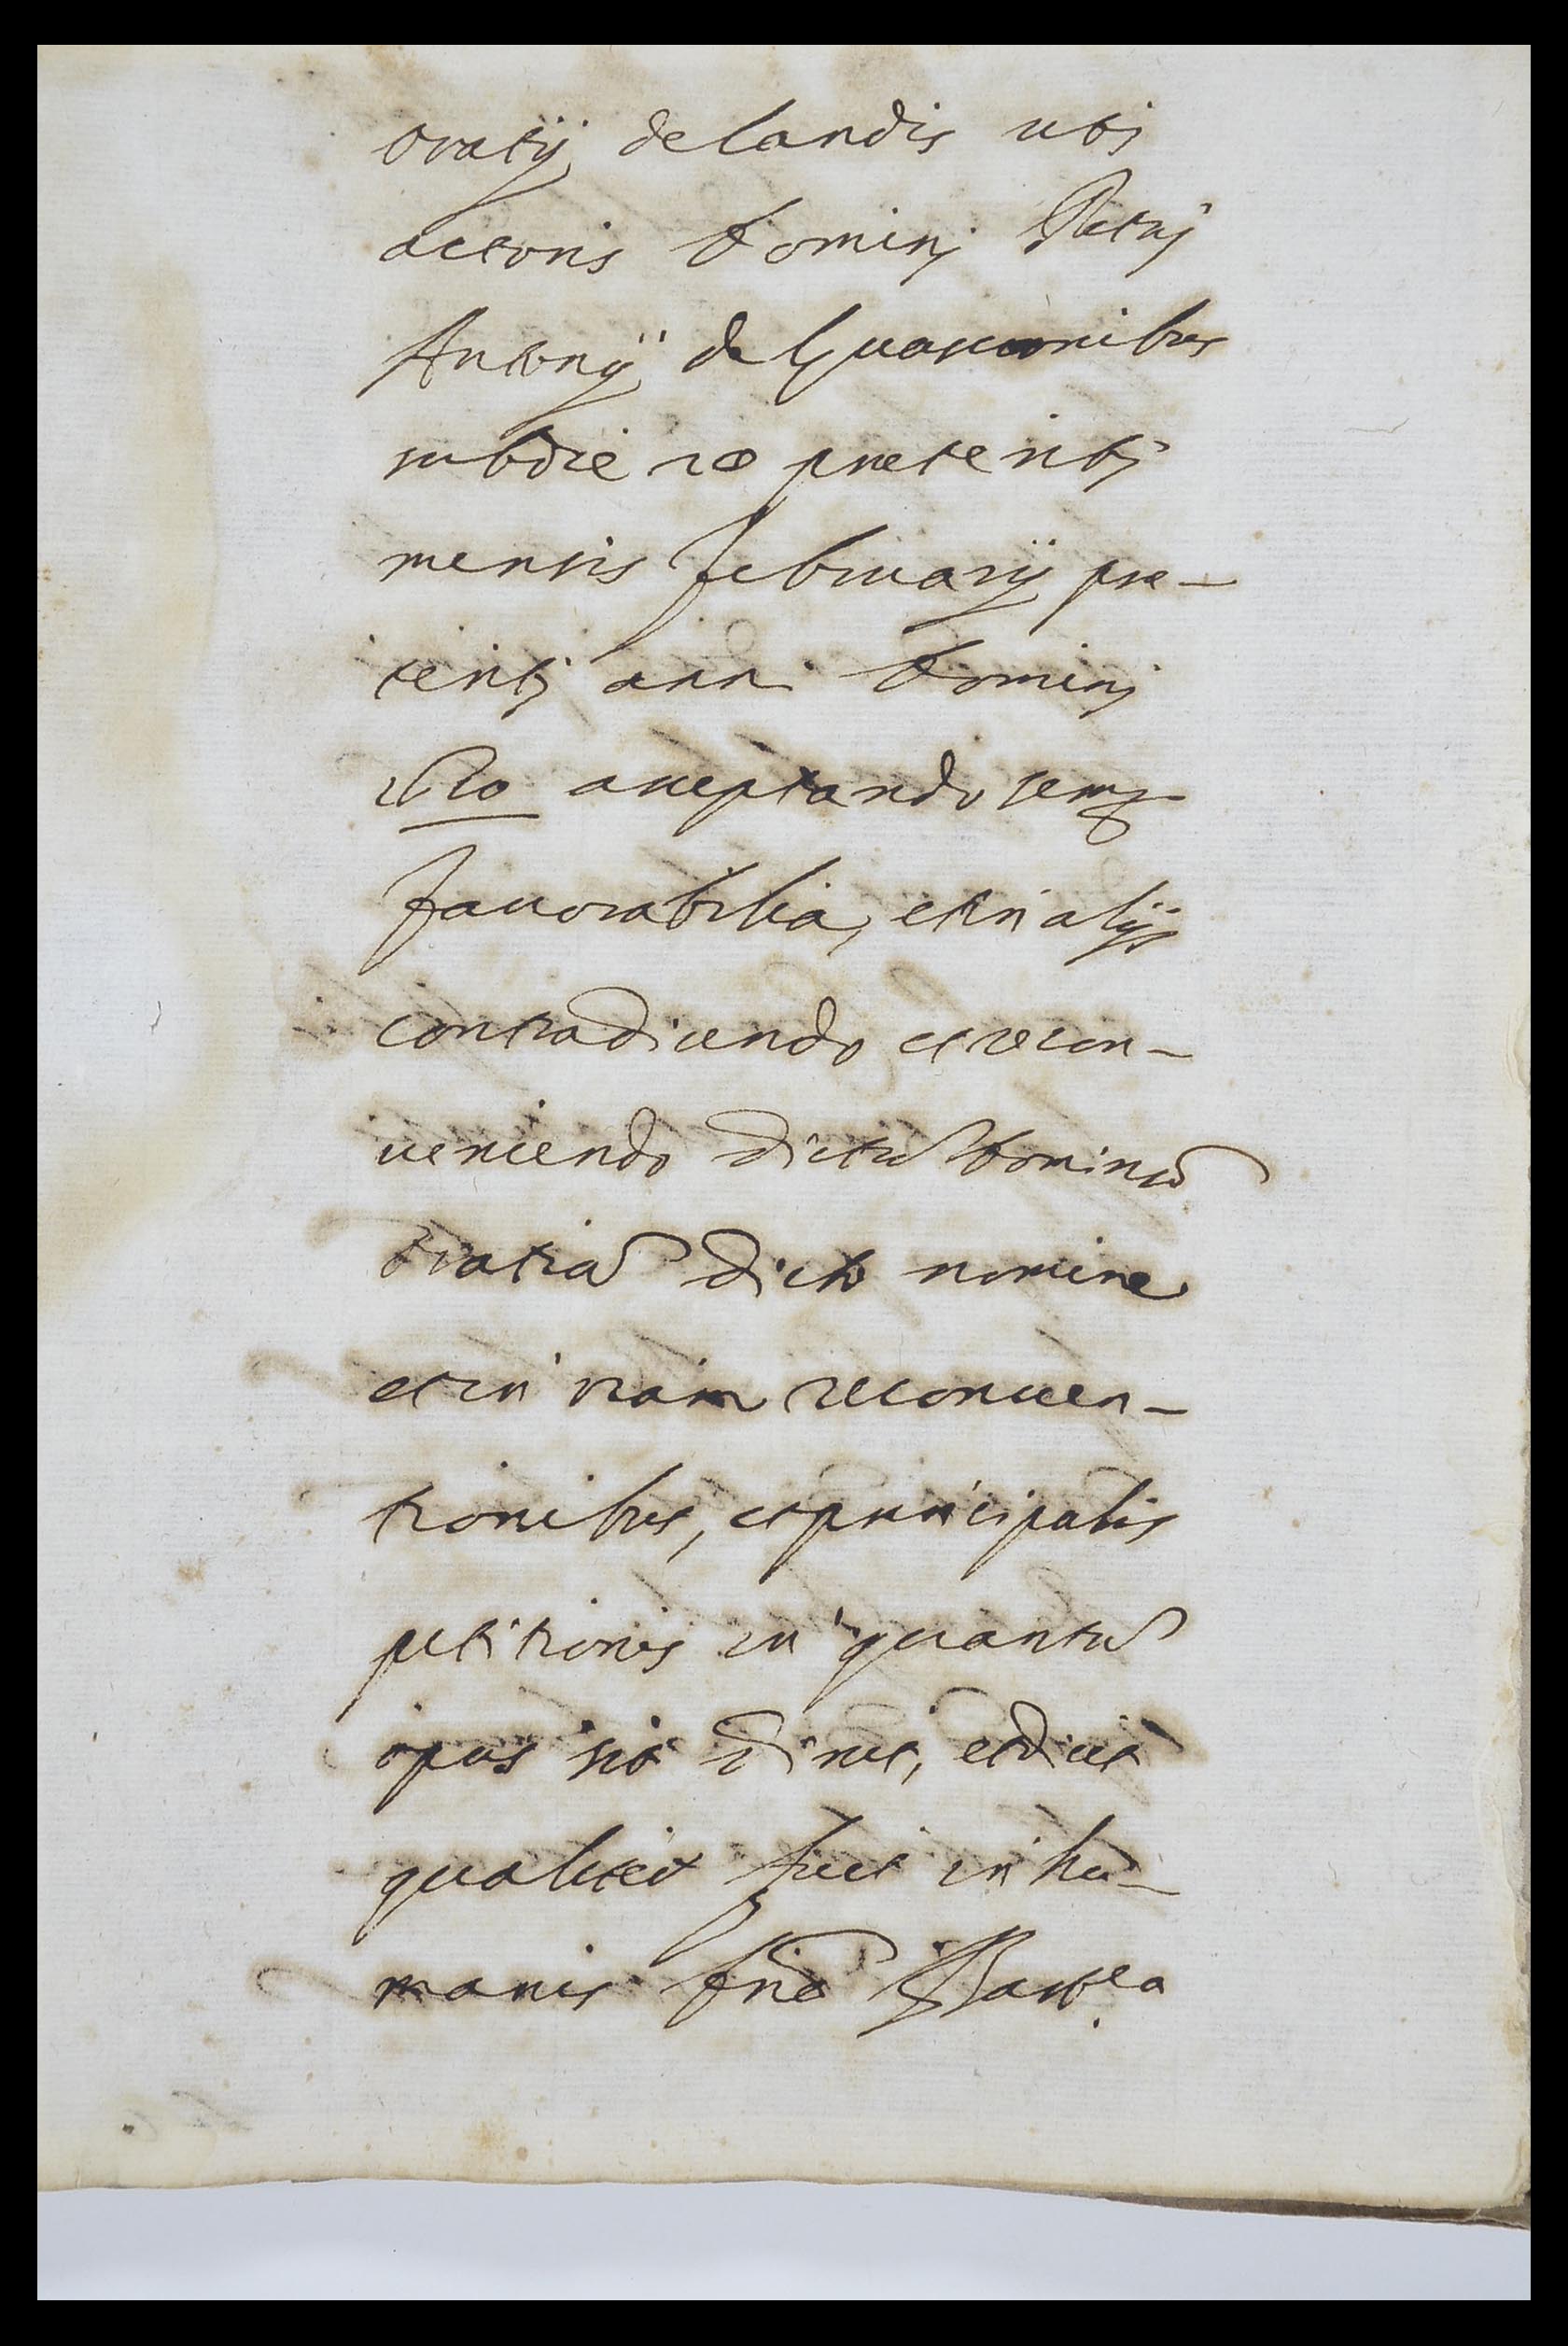 oratij de landis uti
actoris Dominj Petrj
Antonij de Guasconibus
subdie 20 preteritj
mensis februarij pre-
teritj anni Dominj
acceptando semp
fauorabilia, et in alijs
contradicendo et recon-
ueniendo dictũ Dominũ
oratiũ dicto nomine
et in viam reconuen-
tionibus, et principalis
petitionis in quantũ
opus sit dicit, et dicit
qualiter fuit in hu-
manis